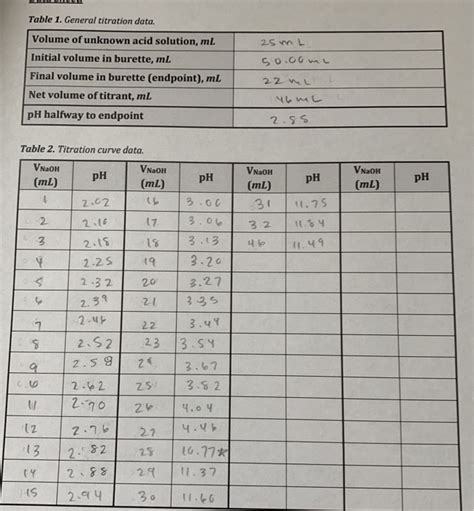 Table 1. General titration data.
Volume of unknown acid solution, mL 25 mL
Initial volume in burette, mL 50.00 mL
Final volume in burette (endpoint), mL 22 mL
Net volume of titrant, mL 46 mL
pH halfway to endpoint 2.85
Table 2. Titration curve data.
VNaOH (mL) pH VNaOH (mL) pH VNaOH (mL) pH VNaOH (mL) pH
1 2.02 16 3.00 31 11.75
2 2.10 17 3.06 32 11.84
3 2.18 18 3.13 46 11.49
4 2.25 19 3.20
5 2.32 20 3.27
6 2.39 21 3.35
7 2.46 22 3.44
8 2.52 23 3.54
9 2.58 3.67
2.62 25 3.82
11 2.70 26 4.04
12 2.76 27 4.46
13 2.82 28 10.77*
14 2.88 29 11.37
15 2.94 30 11.60